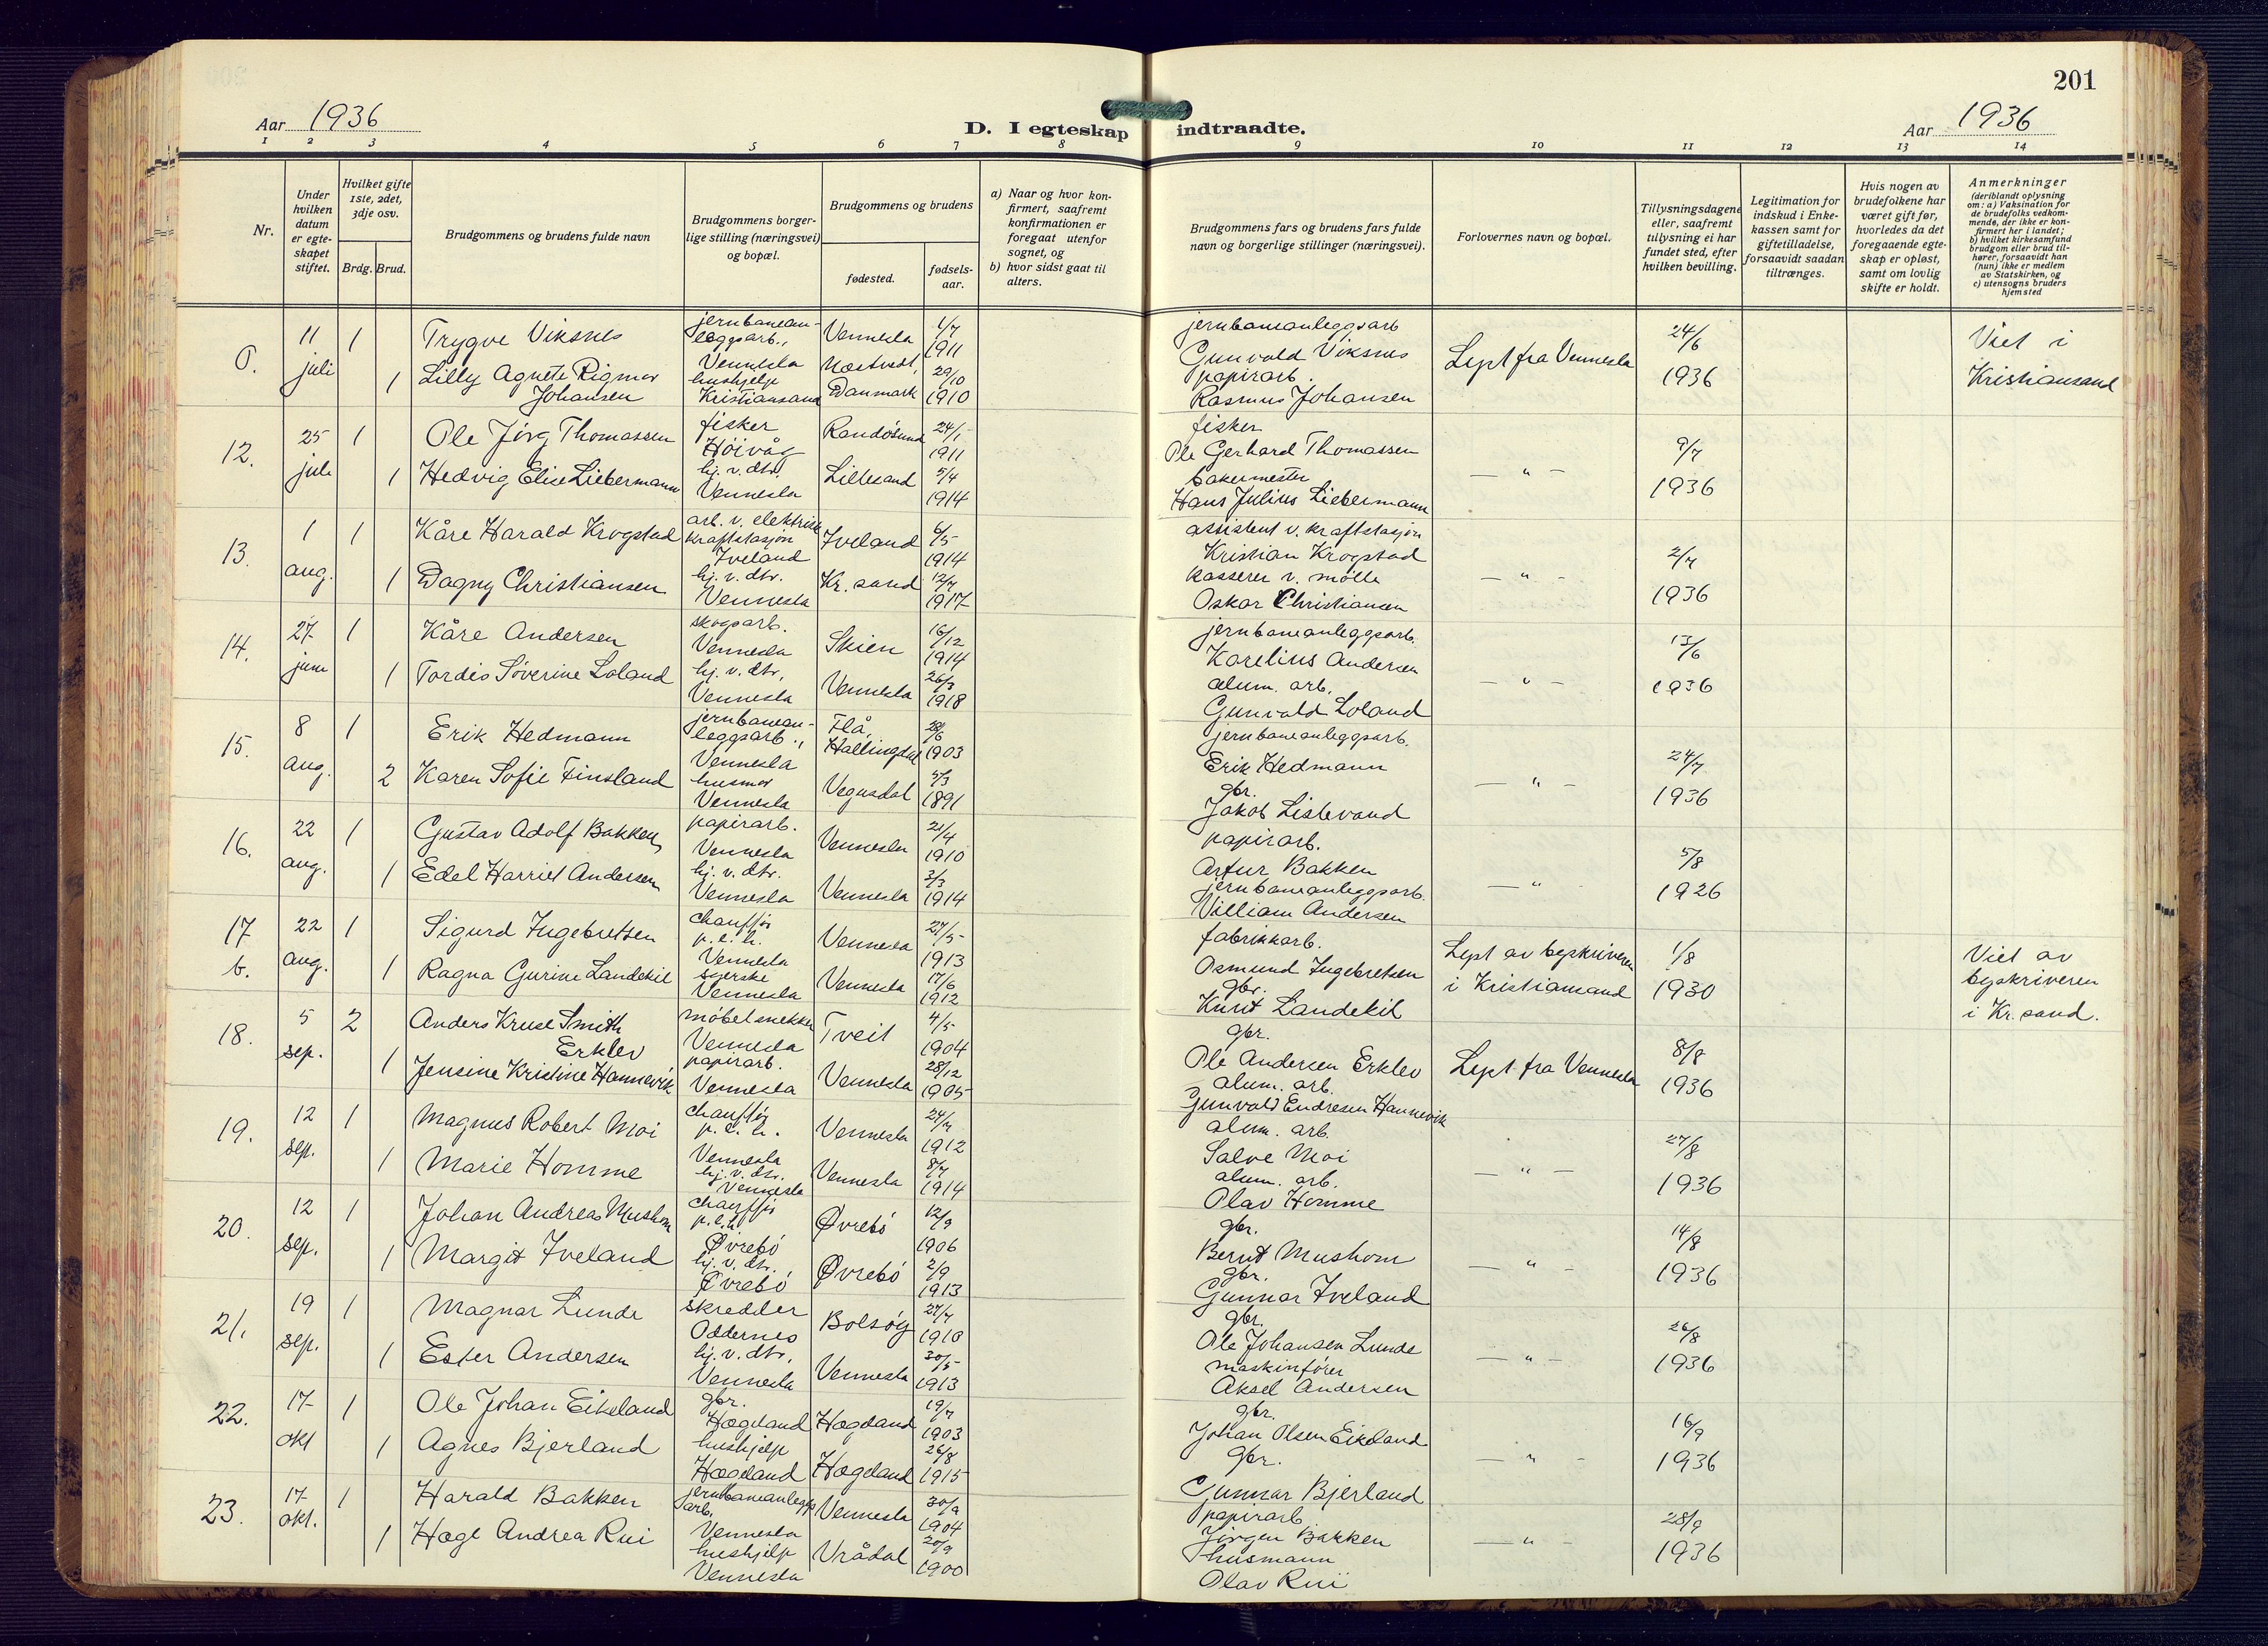 201
Aar 1936
D. I egteskap indtraadte.
Aar 1936
1 2 3 4 5 6 7 8 9 10 11 12 13 14
Nr.
Under hvilken datum er egteskapet stiftet.
Hvilket gifte 1ste, 2det, 3dje osv.
Brdg. Brud.
Brudgommens og brudens fulde navn
Brudgommens borgerlige stilling (næringsvei) og bopæl.
Brudgommens og brudens
fødested.
fødselsaar.
a) Naar og hvor konfirmert, saafremt konfirmationen er foregaat utenfor sognet, og
b) hvor sidst gaat til alters.
Brudgommens fars og brudens fars fulde navn og borgerlige stillinger (næringsvei).
Forlovernes navn og bopæl.
Tillysningsdagene eller, saafremt tillysning ei har fundet sted, efter hvilken bevilling.
Legitimation for indskud i Enkekassen samt for giftetilladelse, forsaavidt saadan tiltrænges.
Hvis nogen av brudefolkene har været gift før, hvorledes da det foregaaende egteskap er opløst, samt om lovlig skifte er holdt.
Anmerkninger (deriblandt oplysning om: a) Vaksination for de brudefolks vedkommende, der ikke er konfirmert her i landet; b) hvilket kirkesamfund brudgom eller brud tilhører, forsaavidt han (hun) ikke er medlem av Statskirken, og c) utensogns bruders hjemsted
0. 11 juli 1 Trygve Viksnes jernbaneanleggsarb., Vennesla Vennesla 1/7 1911 jernbaneanleggsarb Gunvald Viksnes Lyst fra Vennesla 24/6 1936 Viet i Kristiansand
1 Lilly Agnete Rigmor Johansen hushjelp Kristiansand Danmark 29/10 1910 papirarb. Rasmus Johansen
12. 25 juli 1 Ole Jørg Thomassen fisker Høivåg Randøsund 24/1 1911 fisker Ole Gerhard Thomassen — " — 9/7 1936
1 Hedvig Elise Liebermann hj. v. dtr. Vennesla Lillesand 5/4 1914 bakermester Hans Julius Liebermann
13. 1 aug. 1 Kåre Harald Krogstad arb. v. elektrisk kraftstasjon Iveland Iveland 6/5 1914 assistent v. kraftstasjon Kristian Krogstad — " — 2/7 1936
1 Dagny Christiansen hj. v. dtr. Vennesla Kr. sand 12/7 1917 kasserer v. mølle Oskar Christiansen
14. 27 juni 1 Kåre Andersen skogsarb. Vennesla Skien 16/12 1914 jernbaneanleggsarb. Karelius Andersen — " — 13/6 1936
1 Tordis Søverine Loland hj. v. dtr, Vennesla Vennesla 26/3 1918 alum. arb, Gunvald Loland
15. 8 aug. 1 Erik Hedmann jernbaneanleggsarb., Vennesla Flå, Hallingdal 28/6 1903 jernbaneanleggsarb. Erik Hedmann — " — 24/7 1936
2 Karen Sofie Finsland husmor Vennesla Vegusdal 5/3 1891 gbr. Jakob Listevand
16. 22 aug. 1 Gustav Adolf Bakken papirarb. Vennesla Vennesla 21/4 1910 papirarb. Artur Bakken — " — 5/8 1926
1 Edel Harriet Andersen hj. v. dtr. Vennesla Vennesla 3/3 1914 jernbaneanleggsarb. Villiam Andersen
17 b. 22 aug. 1 Sigurd Ingebretsen chauffør p. e. h. Vennesla Vennesla 27/5 1913 fabrikkarb. Osmund Ingebretsen Lyst av byskriveren i Kristiansand 1/8 1930 Viet av byskriveren i Kr. sand.
1 Ragna Gurine Landekil syerske Vennesla Vennesla 17/6 1912 gbr. Knut Landekil
18. 5 sep. 2 Anders Kruse Smith Erklev møbelsnekker Vennesla Tveit 4/5 1904 gbr. Ole Andersen Erklev Lyst fra Vennesla 8/8 1936
1 Jensine Kristine Hannevik papirarb. Vennesla Vennesla 28/12 1905 alum. arb. Gunvald Endresen Hannevik
19. 12 sep. 1 Magnus Robert Moi chauffør p. e. h. Vennesla Vennesla 24/7 1912 alum. arb. Salve Moi — " — 27/8 1936
1 Marie Homme hj. v. dtr. Vennesla Vennesla 8/7 1914 alum. arb. Olav Homme
20. 12 sep. 1 Johan Andreas Mushom chauffør p. e. h Øvrebø Øvrebø 12/9 1906 gbr. Bernt Mushom — " — 14/8 1936
1 Margit Iveland hj. v. dtr. Øvrebø Øvrebø 2/9 1913 gbr. Gunnar Iveland
21. 19 sep. 1 Magnar Lunde skredder Oddernes Bolsøy 27/7 1910 gbr. Ole Johansen Lunde — " — 26/8 1936
1 Ester Andersen hj. v. dtr, Vennesla Vennesla 30/5 1913 maskinfører Aksel Andersen
22. 17 okt 1 Ole Johan Eikeland gbr. Hægeland Hægeland 19/7 1903 gbr. Johan Olsen Eikeland — " — 16/9 1936
1 Agnes Bjerland hushjelp Hægeland Hægeland 26/8 1915 gbr. Gunnar Bjerland
23. 17 okt. 1 Harald Bakken jernbaneanleggsarb. Vennesla Vennesla 30/9 1904 papirarb Jørgen Bakken — " — 28/9 1936
1 Hæge Andrea Rui hushjelp Vennesla Vrådal 20/9 1900 husmann Olav Rui